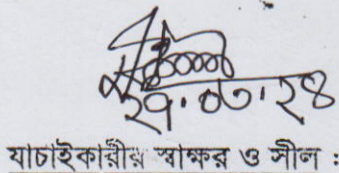 ২৭.০৩.২৪
যাচাইকারীর স্বাক্ষর ও সীল :